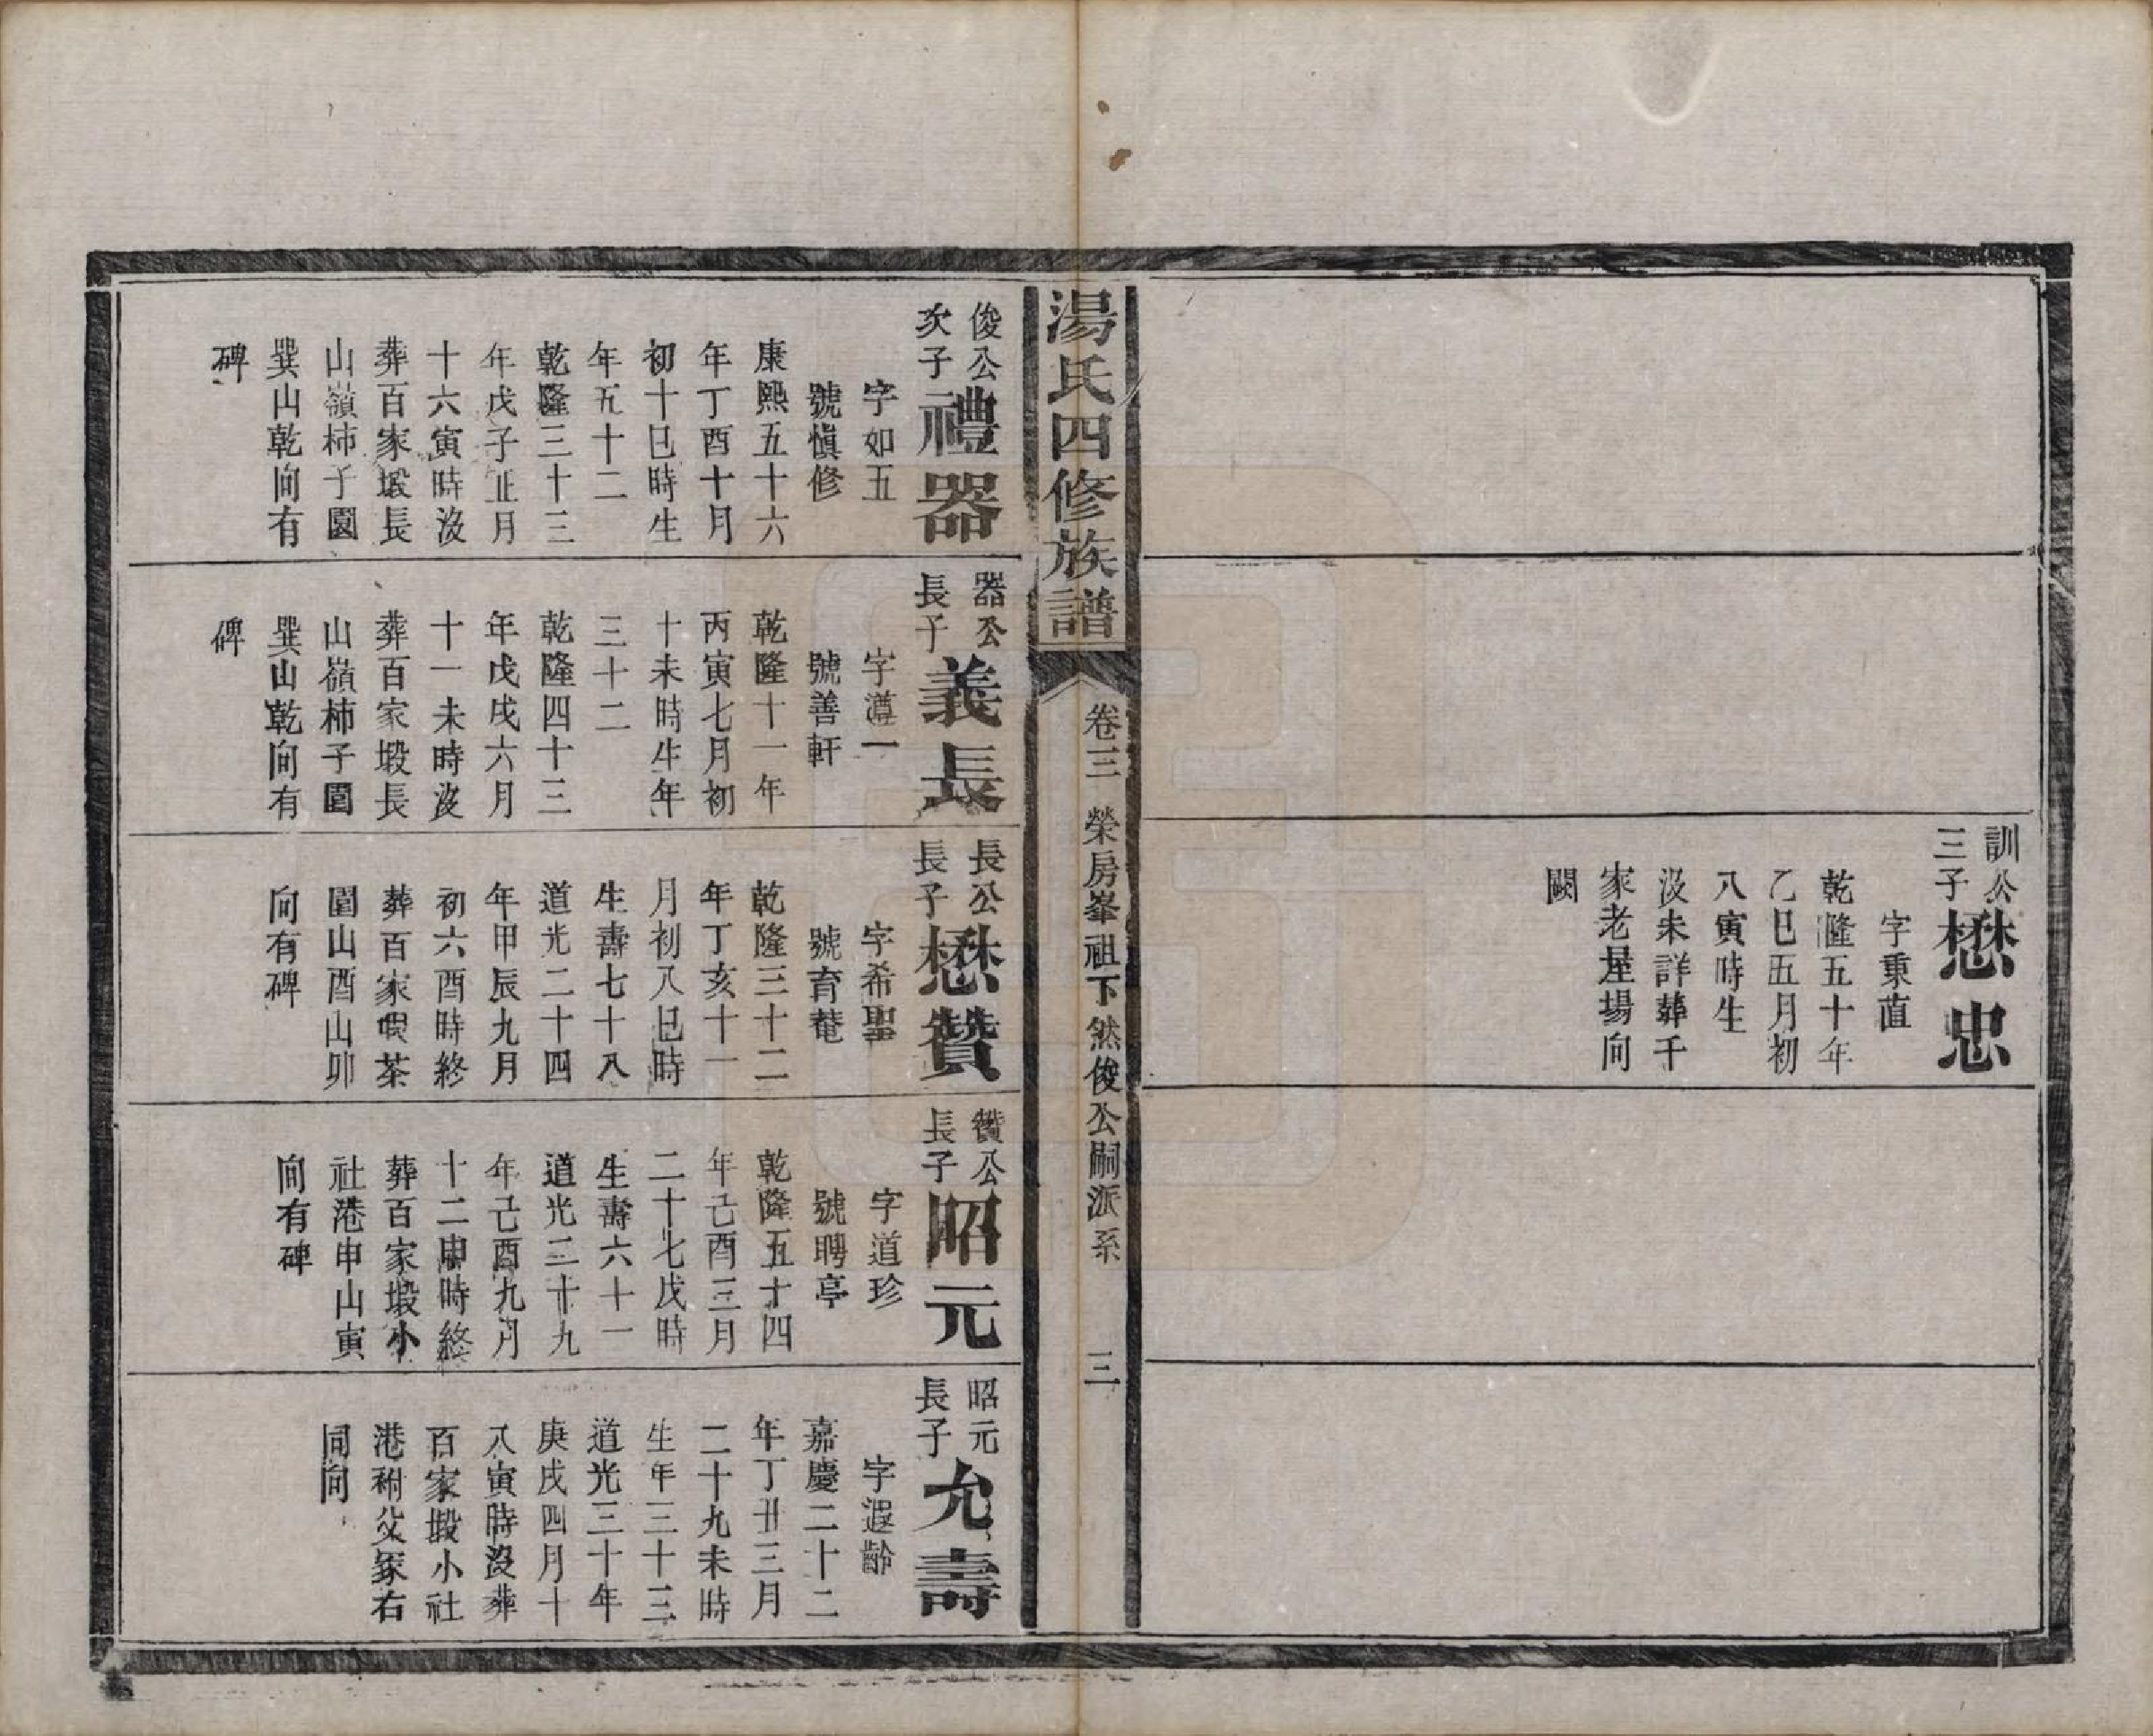 訓公
三子
懋忠
字秉直
乾隆五十年
乙巳五月初
八寅時生
沒未詳葬千
家老屋場向
闕
湯氏四修族譜
卷三
榮房峯祖下然俊公嗣派系
三
俊公
次子
禮器
字如五
號愼修
康熙五十六
年丁酉十月
初十巳時生
年五十二
乾隆三十三
年戊子正月
十六寅時沒
葬百家塅長
山嶺柿子園
巽山乾向有
碑
器公
長子
義長
字遵一
號善軒
乾隆十一年
丙寅七月初
十未時生年
三十二
乾隆四十三
年戊戌六月
十一未時沒
葬百家塅長
山嶺柿子園
巽山乾向有
碑
長公
長子
懋贊
字希聖
號育菴
乾隆三十二
年丁亥十一
月初八巳時
生壽七十八
道光二十四
年甲辰九月
初六酉時終
葬百家塅茶
園山酉山卯
向有碑
贊公
長子
昭元
字道珍
號聘亭
乾隆五十四
年己酉三月
二十七戊時
生壽六十一
道光二十九
年己酉九月
十二申時終
葬百家塅小
社港申山寅
向有碑
昭元
長子
允壽
字遐齡
嘉慶二十二
年丁丑三月
二十九未時
生年三十三
道光三十年
庚戌四月十
八寅時沒葬
百家塅小社
港祔父冢右
同向